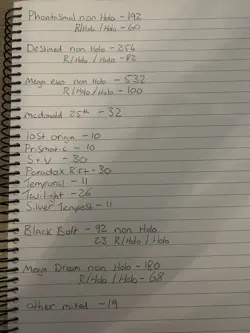 Phantasmal non Holo - 192
R/Holo / Holo - 60
Destined non Holo - 256
R/Holo / Holo - 82
Mega evo non Holo - 532
R/Holo / Holo - 100
mcdonald 25th - 32
lost origin - 10
Prismatic - 10
S+V - 30
Paradox Rift - 30
Temporal - 11
Twilight - 26
Silver Tempest - 11
Black Bolt - 92 non Holo
23 R/Holo / Holo
Mega Dream non Holo - 180
R/Holo / Holo - 68
other mixed - 19